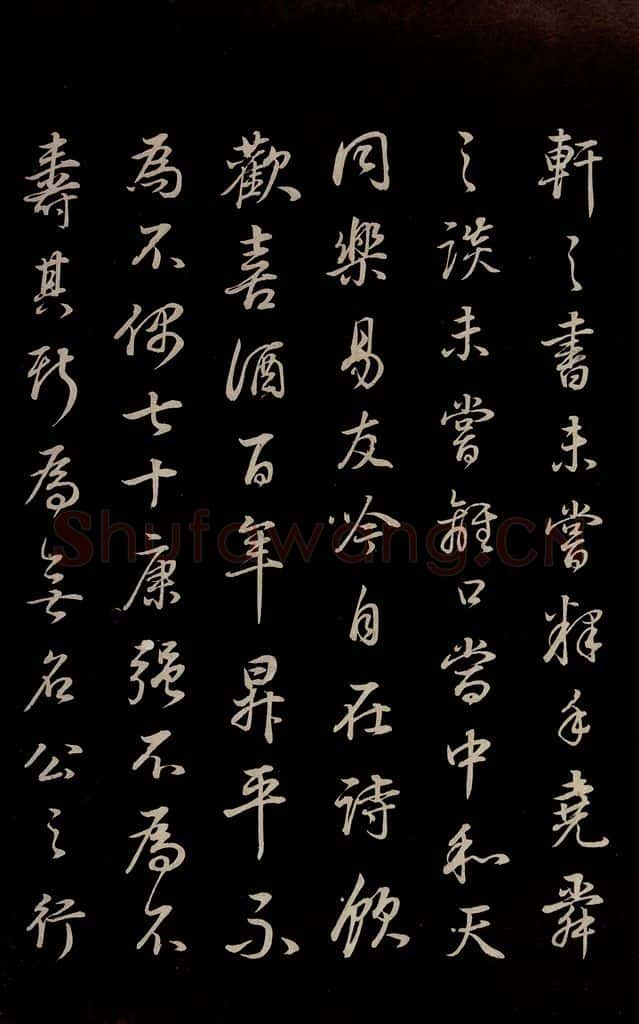 軒之書未嘗釋手堯舜
之談未嘗離口當中和天
同樂易友吟自在詩飲
歡喜酒百年昇平不
為不偶七十康強不為不
壽其斯為無名公之行
Shufawang.CN